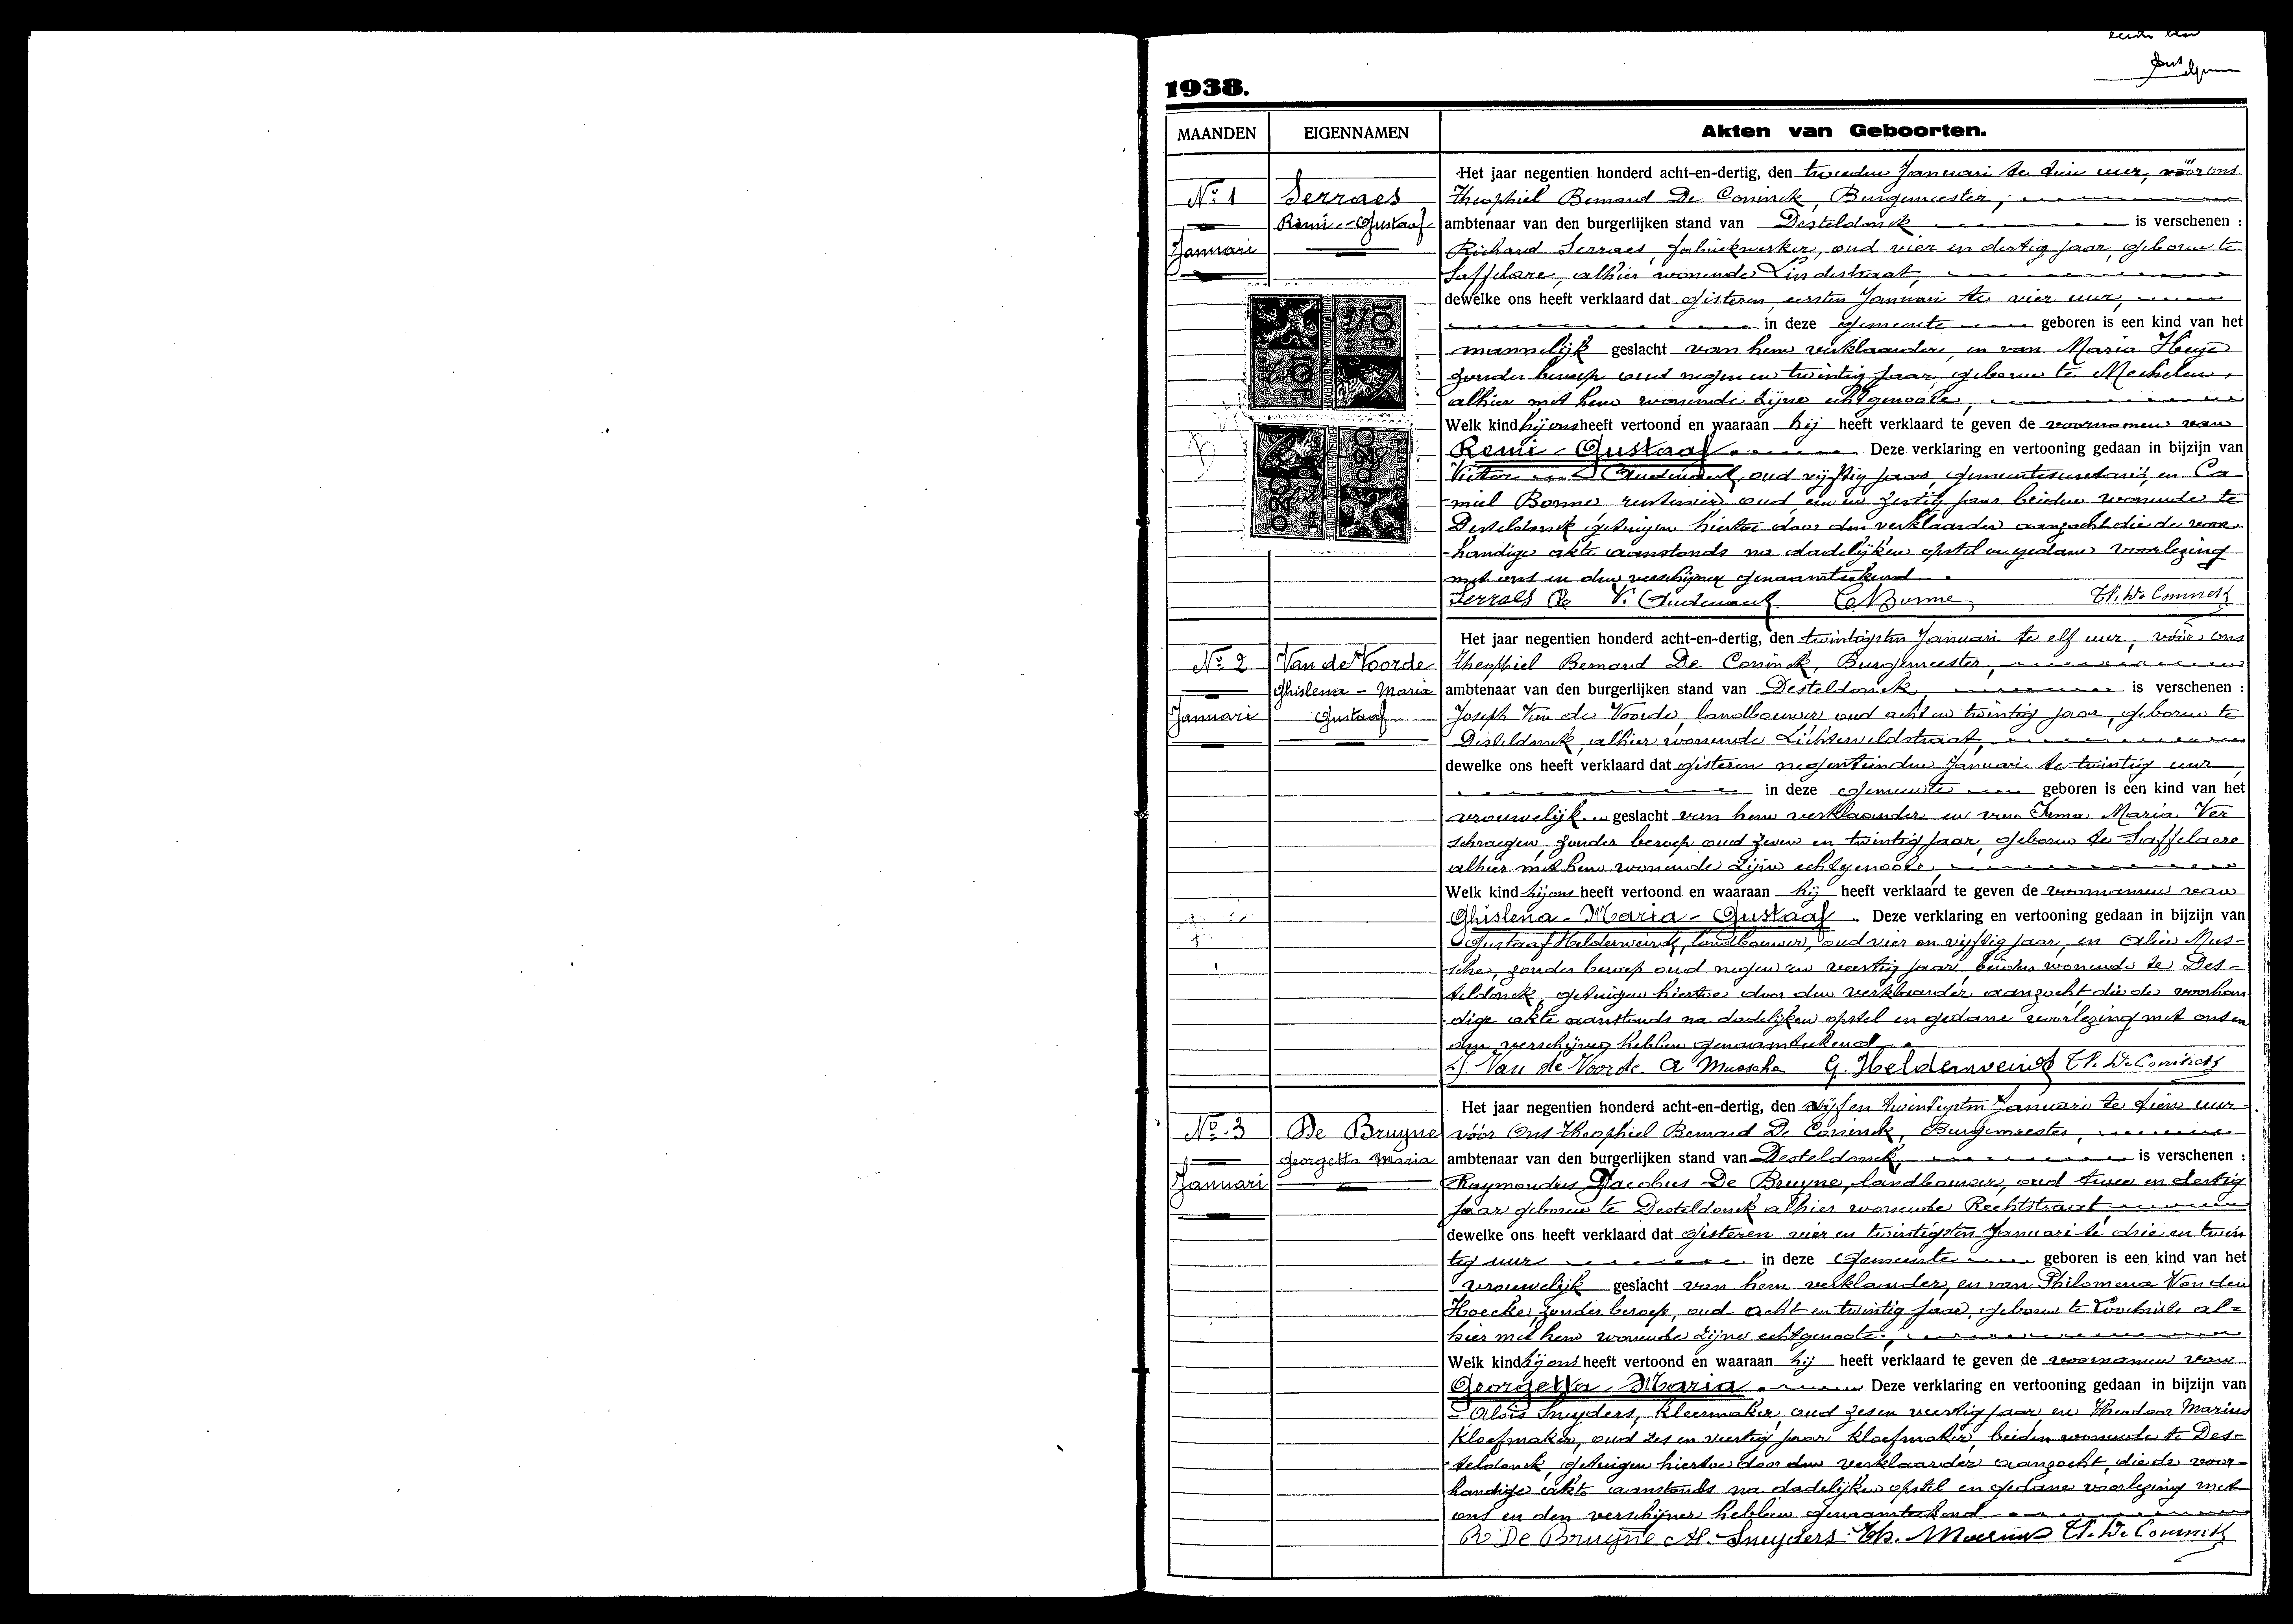 1938.
MAANDEN EIGENNAMEN Akten van Geboorten.
Het jaar negentien honderd acht-en-dertig, den tweeden Januari te tien uur, vóór ons
No. 1 Serraes Theophiel Bernard De Coninck, Burgemeester,
Remi - Gustaaf ambtenaar van den burgerlijken stand van Desteldonck is verschenen :
Januari Richard Serraes, fabriekwerker, oud vier en dertig jaar, geboren te
Saffelare, alhier wonende Lindestraat,
dewelke ons heeft verklaard dat gisteren, eersten Januari te vier uur,
in deze gemeente geboren is een kind van het
mannelijk geslacht van hem verklaarder, en van Maria
zonder beroep oud negen en twintig jaar, geboren te Mechelen,
alhier met hem wonende zijne echtgenoote,
Welk kind hij ons heeft vertoond en waaraan hij heeft verklaard te geven de voornamen van
Remi - Gustaaf Deze verklaring en vertooning gedaan in bijzijn van
Victor oud vijftig jaar, gemeentesecretaris, en Ca-
miel Bonne rentenier oud een en zestig jaar beiden wonende te
Desteldonck getuigen hiertoe door den verklaarder aangezocht die de voor-
handige akte aanstonds na dadelijken opstel en gedane voorlezing
met ons en den verschijner genaamteekend.
Serraes R. V. C. Bonne Th. De Coninck
Het jaar negentien honderd acht-en-dertig, den twintigsten Januari te elf uur, vóór ons
No. 2 Van de Voorde Theophiel Bernard De Coninck, Burgemeester,
Ghislena - Maria ambtenaar van den burgerlijken stand van Desteldonck, is verschenen :
Januari Gustaaf Joseph Van de Voorde, landbouwer, oud acht en twintig jaar, geboren te
Desteldonck, alhier wonende Lichterveldstraat,
dewelke ons heeft verklaard dat gisteren negentienden Januari te twintig uur,
in deze gemeente geboren is een kind van het
vrouwelijk geslacht van hem verklaarder en van Irma Maria Ver
schraegen, zonder beroep oud zeven en twintig jaar, geboren te Saffelaere
alhier met hem wonende zijne echtgenoote,
Welk kind hij ons heeft vertoond en waaraan hij heeft verklaard te geven de voornamen van
Ghislena - Maria - Gustaaf Deze verklaring en vertooning gedaan in bijzijn van
Gustaaf Helderweirdt, landbouwer, oud vier en vijftig jaar, en Alice Mus-
sche, zonder beroep oud negen en veertig jaar, beiden wonende te Des-
teldonck, getuigen hiertoe door den verklaarder aangezocht, die de voorhan
dige akte aanstonds na dadelijken opstel en gedane voorlezing met ons en
den verschijner hebben genaamteekend.
J. Van de Voorde A Mussche G. Helderweirdt Th. De Coninck
Het jaar negentien honderd acht-en-dertig, den vijf en twintigsten Januari te tien uur
No. 3 De Bruyne vóór Ons Theophiel Bernard De Coninck, Burgemeester,
Georgetta Maria ambtenaar van den burgerlijken stand van Desteldonck, is verschenen :
Januari Raymondus Jacobus De Bruyne, landbouwer, oud twee en dertig
jaar geboren te Desteldonck alhier wonende Rechtstraat
dewelke ons heeft verklaard dat gisteren vier en twintigsten Januari te drie en twin
tig uur in deze Gemeente geboren is een kind van het
vrouwelijk geslacht van hem verklaarder, en van Philomena Van den
Hoecke, zonder beroep, oud acht en twintig jaar, geboren te Loochristi al-
hier met hem wonende zijne echtgenoote,
Welk kind hij ons heeft vertoond en waaraan hij heeft verklaard te geven de voornamen van
Georgetta - Maria Deze verklaring en vertooning gedaan in bijzijn van
Alois Snyders, Kleermaker, oud zes en veertig jaar, en Theodoor Marius
Kloefmaker, oud zes en veertig jaar kloefmaker, beiden wonende te Des-
teldonck, getuigen hiertoe door den verklaarder aangezocht, die de voor-
handige akte aanstonds na dadelijken opstel en gedane voorlezing met
ons en den verschijner hebben genaamteekend
R De Bruyne Al. Snyders. Th. Th. De Coninck